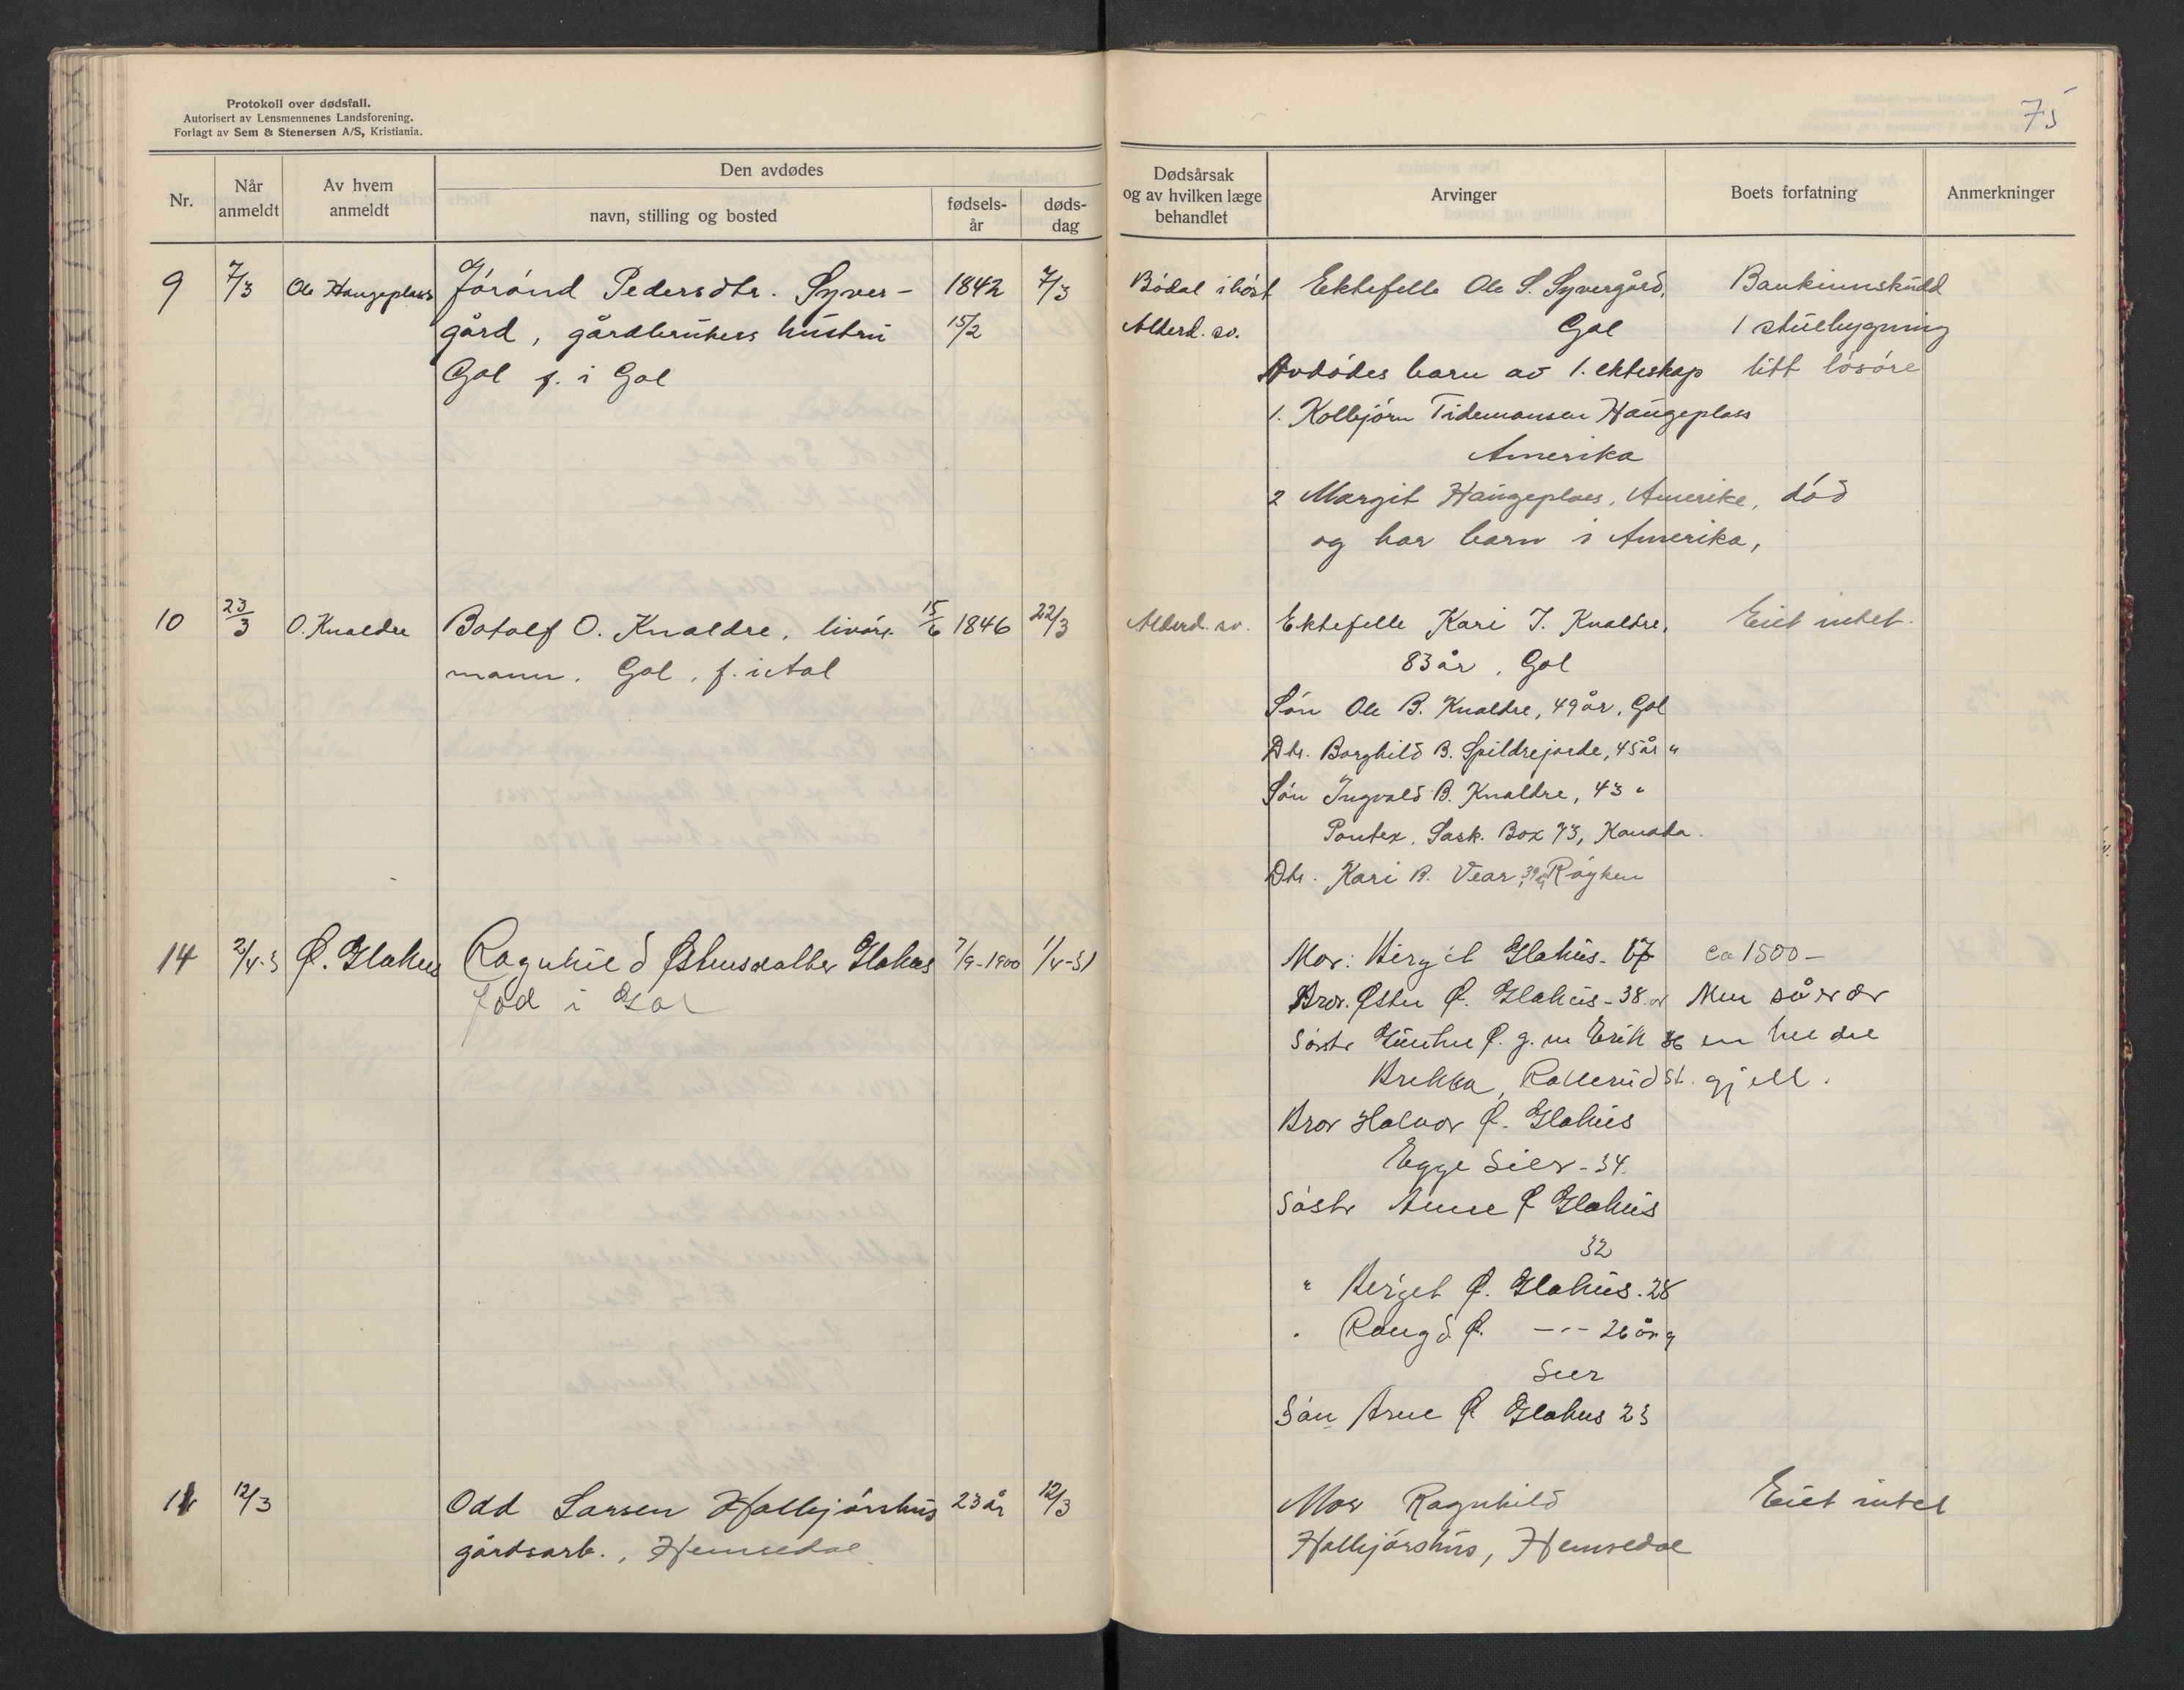 Protokoll over dødsfall.
Autorisert av Lensmennenes Landsforening.
Forlagt av Sem & Stenersen A/S, Kristiania.
75
Nr.
Når anmeldt
Av hvem anmeldt
Den avdødes
navn, stilling og bosted
fødsels-år
døds-dag
Dødsårsak og av hvilken læge behandlet
Arvinger
Boets forfatning
Anmerkninger
9 7/3 Ole Haugeplass Jórónd Pedersdtr. Syver- 1842 7/3 Bódal i høst Ektefelle Ole S. Syvergård, Bankinnskudd
gård, gårdbrukers hustru 15/2 Alderd. sv. Gol 1 stuebygning
Gol f. i Gol Avdødes barn av 1. ekteskap litt løsøre
1. Kolbjørn Tidemansen Haugeplass
Amerika
2 Margit Haugeplass, Amerika, død
og har barn i Amerika,
10 23/3 O. Knaldre Botolf O. Knaldre, livørs 15/6 1846 22/3 Alderd. sv. Ektefelle Kari J. Knaldre, Eiet intet.
mann. Gol, f. i Aal 83 år, Gol
Søn Ole B. Knaldre, 49 år, Gol
Dtr. Borghild B. Spildrejorde, 45 år "
Søn Ingvald B. Knaldre, 43 "
Pontex, Sask. Box 73, Kanada.
Dtr. Kari B. Vear, 39 Røyken
14 2/4-3 Ø. Glahus Ragnhild Østensdatter Glahus 7/9-1900 1/4-31 Mor: Birgit Glahus - ca 1500 -
Fød i Gol Bror. Østen Ø. Glahus - 38 år Men så er der
Søstr Ø. g. m Erik 36 en hel del
Brekka, Rallerud st. gjell.
Bror Halvor Ø. Glahus
34.
Søstr Anne Ø Glahus
32
" Berget Ø. Glahus. 28
" Ø. -"- 26 år g
Søn Arne Ø Glahus 23
11 12/3 Odd Larsen Halbjørshus 23 år 12/3 Mor Ragnhild Eiet intet
gårdsarb., Hemsedal Halbjørshus, Hemsedal